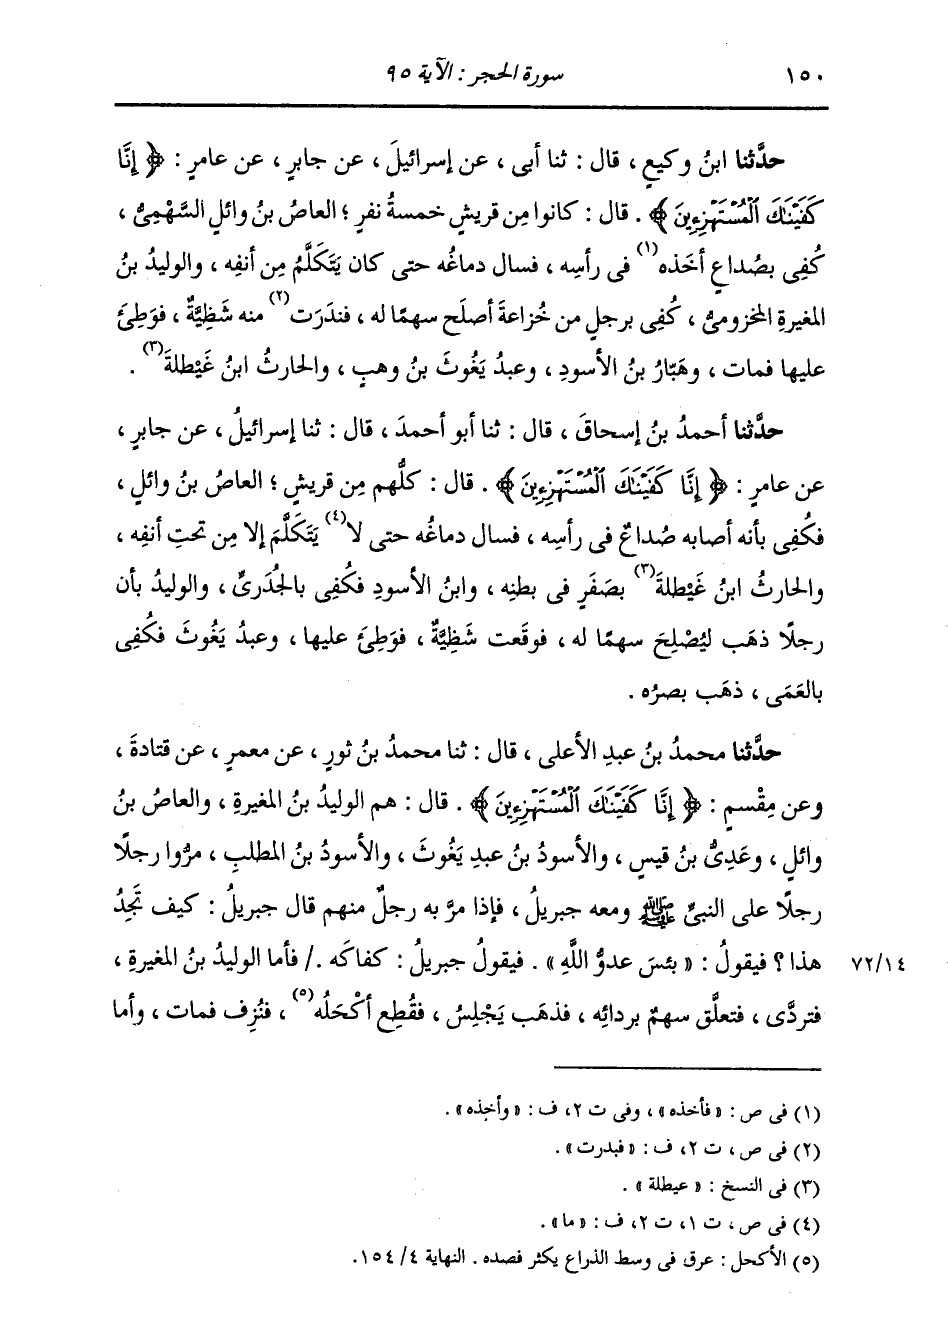 ١٥٠ سورة الحجر : الآية ٩٥
حدَّثنا ابنُ وكيعٍ ، قال : ثنا أبى ، عن إسرائيلَ ، عن جابرٍ ، عن عامرٍ : ﴿ إِنَّا
كَفَيْنَٰكَ ٱلْمُسْتَهْزِءِينَ ﴾ . قال : كانوا مِن قريشٍ خمسةُ نفرٍ ؛ العاصُ بنُ وائلٍ السَّهْمِىُّ ،
كُفِى بصُداعٍ أخَذه(١) فى رأسِه ، فسال دماغُه حتى كان يَتَكَلَّمُ مِن أنفِه ، والوليدُ بنُ
المغيرةِ المخزومىُّ ، كُفِى برجلٍ من خُزاعةَ أصلَح سهمًا له ، فندَرَت(٢) منه شَظِيَّةٌ ، فوَطِئَ
عليها فمات ، وهَبَّارُ بنُ الأسودِ ، وعبدُ يَغُوثَ بنُ وهبٍ ، والحارثُ ابنُ غَيْطلةَ(٣) .
حدَّثنا أحمدُ بنُ إسحاقَ ، قال : ثنا أبو أحمدَ ، قال : ثنا إسرائيلُ ، عن جابرٍ ،
عن عامرٍ : ﴿ إِنَّا كَفَيْنَٰكَ ٱلْمُسْتَهْزِءِينَ ﴾ . قال : كلُّهم مِن قريشٍ ؛ العاصُ بنُ وائلٍ ،
فكُفِى بأنه أصابه صُداعٌ فى رأسِه ، فسال دماغُه حتى لا(٤) يَتَكَلَّمَ إلا مِن تحتِ أنفِه ،
والحارثُ ابنُ غَيْطلةَ(٣) بصَفَرٍ فى بطنِه ، وابنُ الأسودِ فكُفِى بالجُدَرىِّ ، والوليدُ بأن
رجلًا ذهَب ليُصْلِحَ سهمًا له ، فوقَعت شَظِيَّةٌ ، فوَطِئَ عليها ، وعبدُ يَغُوثَ فكُفِى
بالعَمَى ، ذهَب بصرُه .
حدَّثنا محمدُ بنُ عبدِ الأعلى ، قال : ثنا محمدُ بنُ ثورٍ ، عن معمرٍ ، عن قتادةَ ،
وعن مِقْسمٍ : ﴿ إِنَّا كَفَيْنَٰكَ ٱلْمُسْتَهْزِءِينَ ﴾ . قال : هم الوليدُ بنُ المغيرةِ ، والعاصُ بنُ
وائلٍ ، وعَدِىُّ بنُ قيسٍ ، والأسودُ بنُ عبدِ يَغُوثَ ، والأسودُ بنُ المطلبِ ، مرُّوا رجلًا
رجلًا على النبىِّ ﷺ ومعه جبريلُ ، فإذا مرَّ به رجلٌ منهم قال جبريلُ : كيف تَجِدُ
هذا ؟ فيقولُ : « بئسَ عدوُّ اللَّهِ » . فيقولُ جبريلُ : كفاكَه ./ فأما الوليدُ بنُ المغيرةِ ، ٧٢/١٤
فتردَّى ، فتعلَّق سهمٌ بردائِه ، فذهَب يَجْلِسُ ، فقُطِع أكْحَلُه(٥) ، فنُزِف فمات ، وأما
(١) فى ص : « فأخذه » ، وفى ت ٢، ف : « وأخذه » .
(٢) فى ص ، ت ٢، ف : « فبدرت » .
(٣) فى النسخ : « عيطلة » .
(٤) فى ص ، ت ١، ت ٢، ف : « ما » .
(٥) الأكحل : عرق فى وسط الذراع يكثر فصده . النهاية ٤/ ١٥٤.